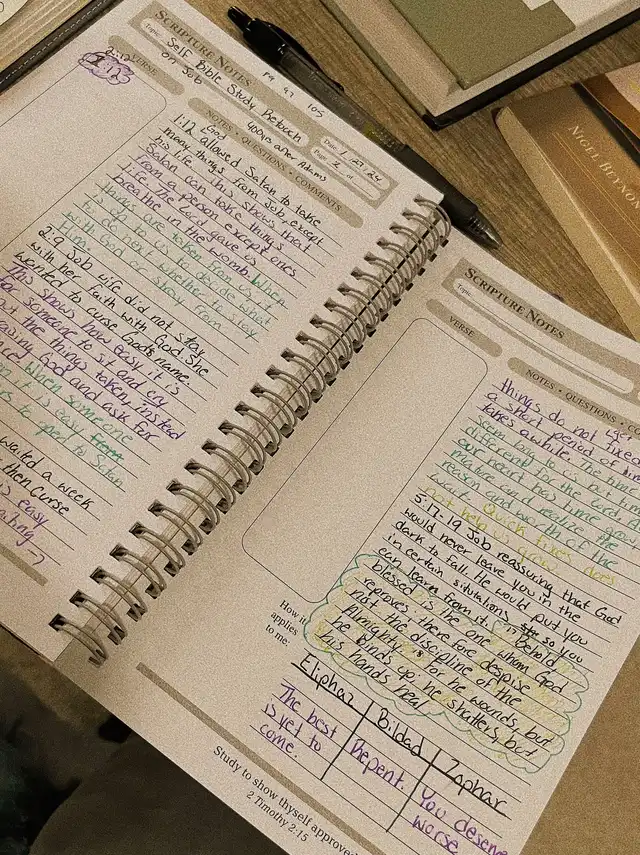 SCRIPTURE NOTES
Topic: Self Bible Study Retouch
on Job
Pg 97 105
VERSE
2:12
1:12
NOTES • QUESTIONS • COMMENTS
400yrs after Adams
Date: 1 27 24
Page: 2 of
1:12 God allowed Satan to take
many things from Job, except
his life. This shows that
Satan can take things
from a person except ones
life. The Lord gave us
breathe in the womb.
things are taken from us. When
is up to us to decide what
to do next whether to stay
with God or stray from
Him.
2:9 Job wife did not stay
with her faith with God. She
wanted to curse God's name.
This shows how easy it is
for someone to sit and cry
about the things taken instead
God and ask for
When someone
it is easy
to open to Satan
waited a week
then curse
is easy
SCRIPTURE NOTES
Topic:
VERSE
NOTES • QUESTIONS • CO
things do not get fixed
a short period of time
takes a while. The time
seem long to us but is
different for the Lord.
our heart has time grow
mature and realize the
reason and worth of the
wait. Quick fixes does
not help us grow.
5:17-19 Job reassuring that God
would never leave you in the
dark to fall. He would put you
in certain situtations so you
can learn from it. "17 Behold
blessed is the one whom God
reproves; therefore despise
not the discipline of the
Almighty. 18 for he wounds, but
he binds up; he shatters, but
his hands heal
How it
applies
to me:
Eliphaz
Bildad
Zophar
The best
is yet to
come.
Repent.
You deserve
worse
Study to show thyself approved
2 Timothy 2:15
NIGEL BEYNON